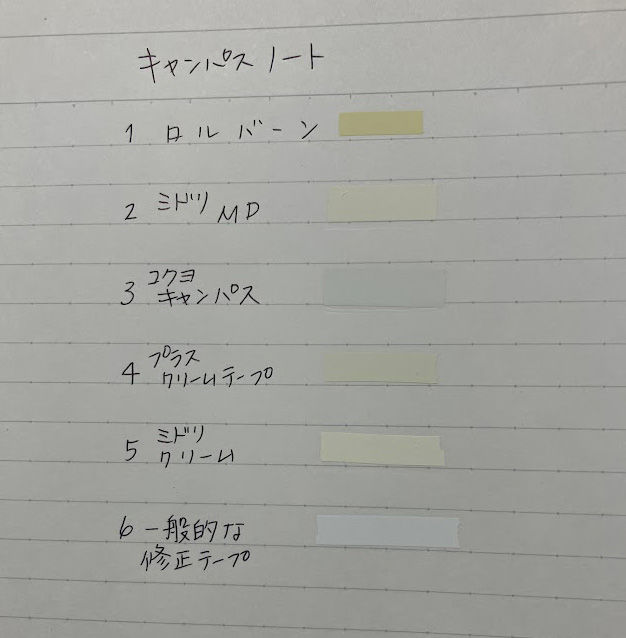 キャンパスノート
1 ロルバーン
2 ミドリMD
3 コクヨ
キャンパス
4 プラス
クリームテープ
5 ミドリ
クリーム
6 一般的な
修正テープ